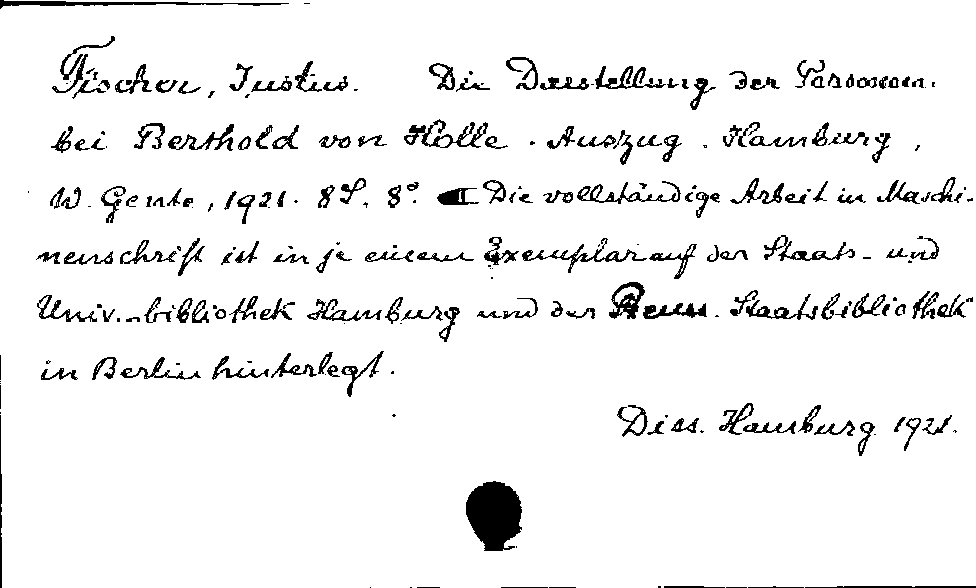 Fischer, Justus. Die Darstellung der Personen
bei Berthold von Holle. Auszug. Hamburg,
W. Gente, 1921. 8 S. 8°. Die vollständige Arbeit in Maschi-
nenschrift ist in je einem Exemplar auf der Staats- und
Univ.-bibliothek Hamburg und der Preuss. Staatsbibliothek
in Berlin hinterlegt.
Diss. Hamburg 1921.